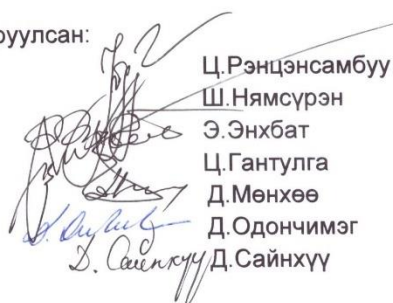 руулсан:
Ц.Рэнцэнсамбуу
Ш.Нямсүрэн
Э.Энхбат
Ц.Гантулга
Д.Мөнхөө
Д.Одончимэг
Д.Сайнхүү